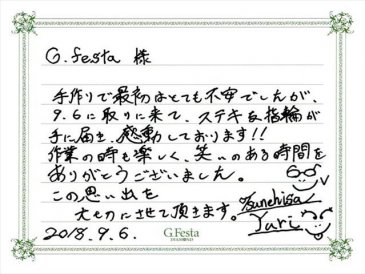 G.festa 様
手作りで最初はとても不安でしたが、
9.6に取りに来て、ステキな指輪が
手に届き、感動しております!!
作業の時も楽しく、笑いのある時間を
ありがとうございました。
この思い出を
大切にさせて頂きます。
Tsunehisa
Yuri
2018.9.6.
G.Festa
DIAMOND